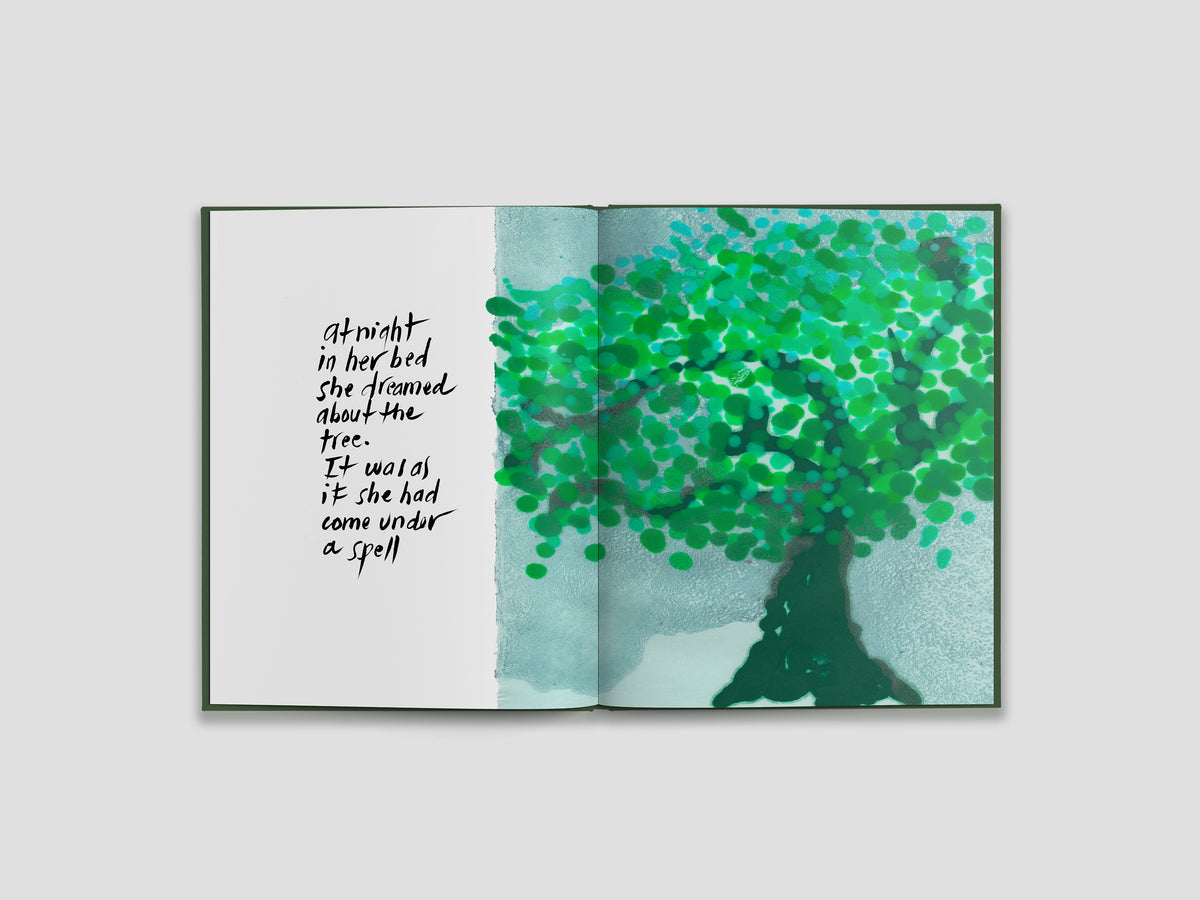 at night
in her bed
she dreamed
about the
tree.
It was as
if she had
come under
a spell